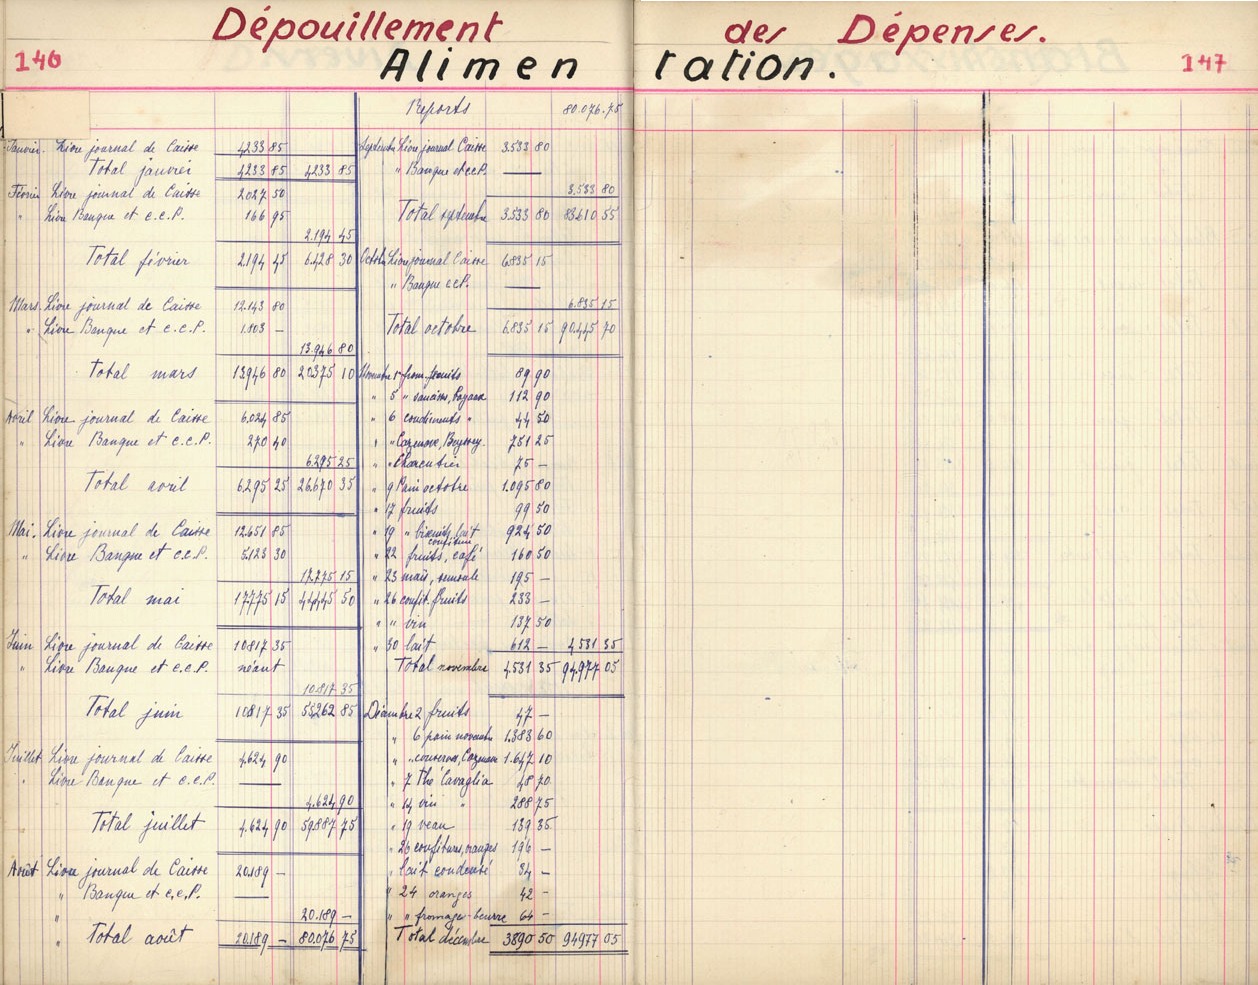 Dépouillement des Dépenses.
146 Alimen tation. 147
Janvier. Livre journal de Caisse 4233 85
Total janvier 4233 85 4233 85
Février Livre journal de Caisse 2027 50
" Livre Banque et c.c.P. 166 95
2.194 45
Total février 2.194 45 6.428 30
Mars. Livre journal de Caisse 12.143 80
" Livre Banque et c.c.P. 1.803 —
13.946 80
Total mars 13946 80 20375 10
Avril Livre journal de Caisse 6.024 85
" Livre Banque et c.c.P. 270 40
6.295 25
Total avril 6.295 25 26.670 35
Mai. Livre journal de Caisse 12.651 85
" Livre Banque et c.c.P. 5.123 30
17.775 15
Total mai 17775 15 44445 50
Juin Livre journal de Caisse 10817 35
" Livre Banque et c.c.P. néant
10.817 35
Total juin 10817 35 55262 85
Juillet Livre journal de Caisse 4.624 90
" Livre Banque et c.c.P. —
4.624 90
Total juillet 4.624 90 59887 75
Août Livre journal de Caisse 20.189 —
" Banque et c.c.P. —
" 20.189 —
" Total août 20.189 — 80.076 75
Reports 80.076.75
Septembre Livre journal Caisse 3.533 80
" Banque et c.c.P. —
3.533 80
Total septembre 3.533 80 83.610 55
Octobre Livre journal Caisse 6.835 15
" Banque c.c.P. —
6.835 15
Total octobre 6.835 15 90.445 70
Novembre from. fruits 89 90
" 5 " 112 90
" 6 condiments " 44 50
" " Cazenove, 751 25
" " Charcutier 75 —
" 9 Pain octobre 1.095 80
" 17 fruits 99 50
" 19 " biscuits, lait confiture 924 50
" 22 fruits, café 160 50
" 23 maïs, semoule 195 —
" 26 confit. fruits 233 —
" " vin 137 50
" 30 lait 612 — 4531 35
Total novembre 4.531 35 94977 05
Décembre 2 fruits 47 —
" 6 pain novembre 1.383 60
" " conserves, 1.647 10
" 7 Thé Cavaglia 48 70
" 14 vin " 288 75
" 19 veau 139 35
" 26 confitures, oranges 196 —
" lait condensé 34 —
" 24 oranges 42 —
" " fromages-beurre 64 —
Total décembre 3890 50 94977 05